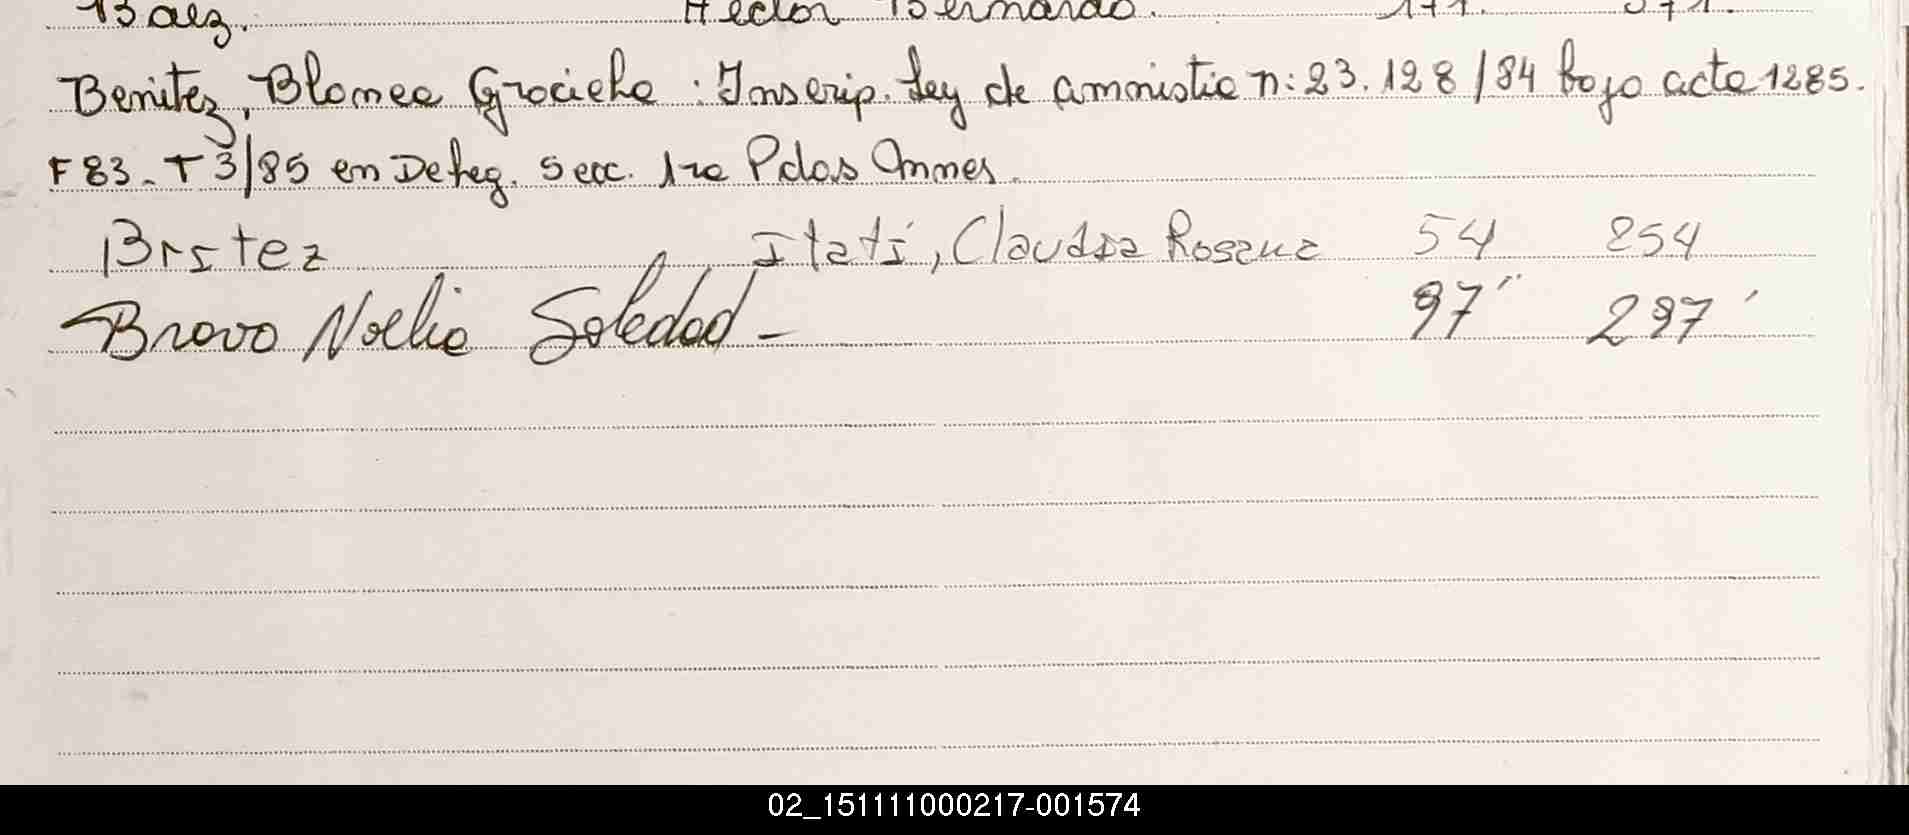 Baez. Hector Bernardo. 171. 371.
Benitez, Blanca Graciela : Inscrip. Ley de amnistia n: 23.128/84 bajo acta 1285.
F 83. T 3/85 en Deleg. Secc. 1ra Pdas Mnes.
Britez Itatí, Claudia Rosana 54 254
Bravo Noelia Soledad - 97 297
02_151111000217-001574